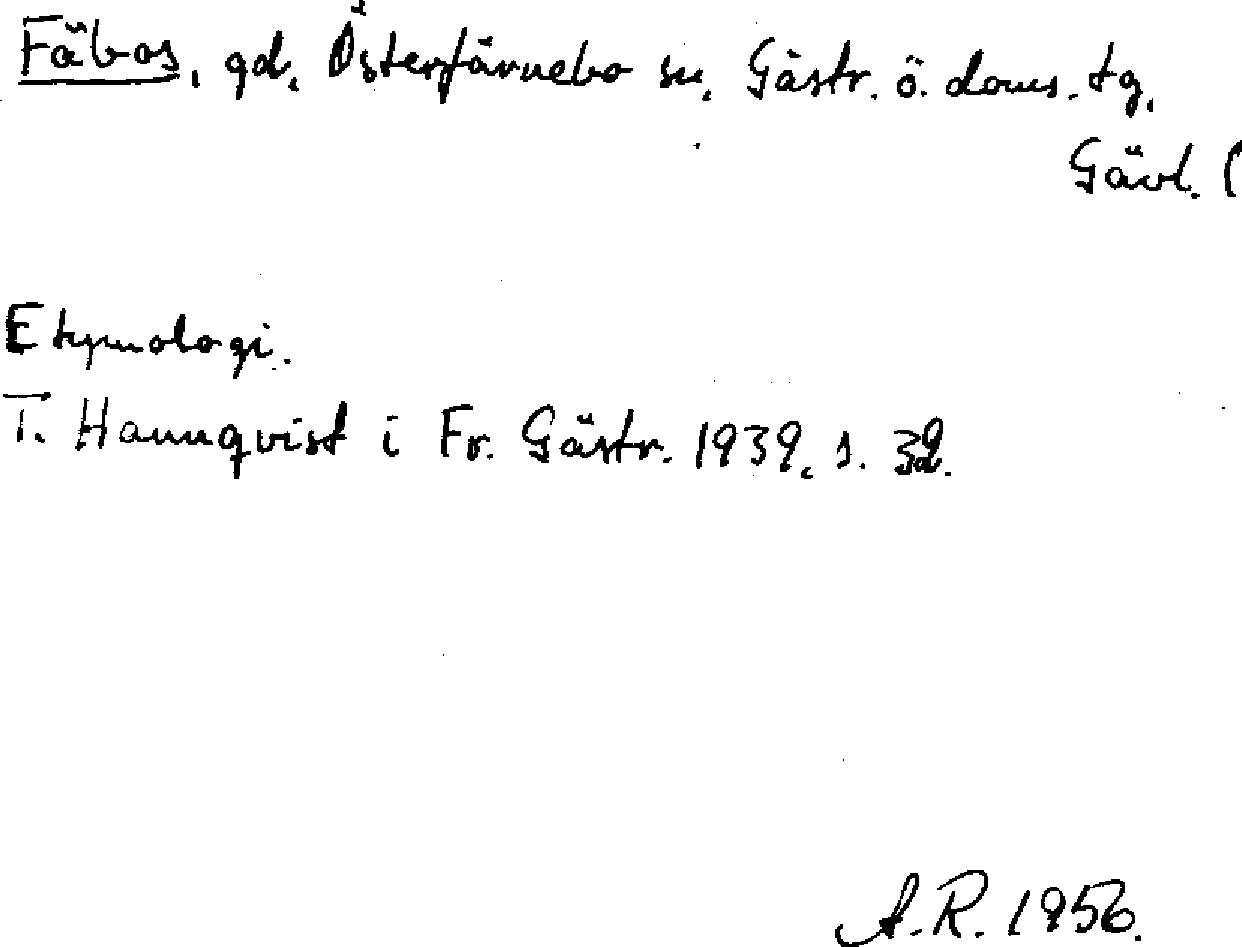 Fäbos, gd, Österfärnebo sn, Gästr. ö. doms. tg.
Gävl. l
Etymologi.
T. Hannqvist i Fr. Gästr. 1939, s. 32.
A.R. 1956.